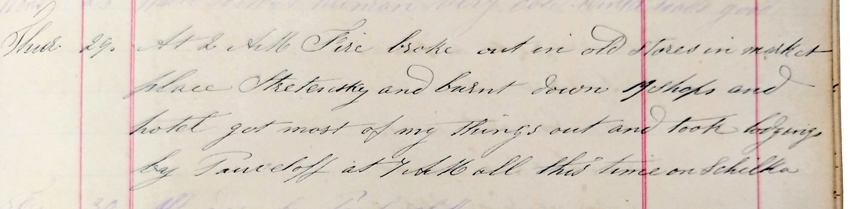 Thur 29. At 2 AM Fire broke out in old stores in market
place Stretensky and burnt down 19 shops and
hotel got most of my things out and took lodgings
by at 7 AM all this time on Schilka